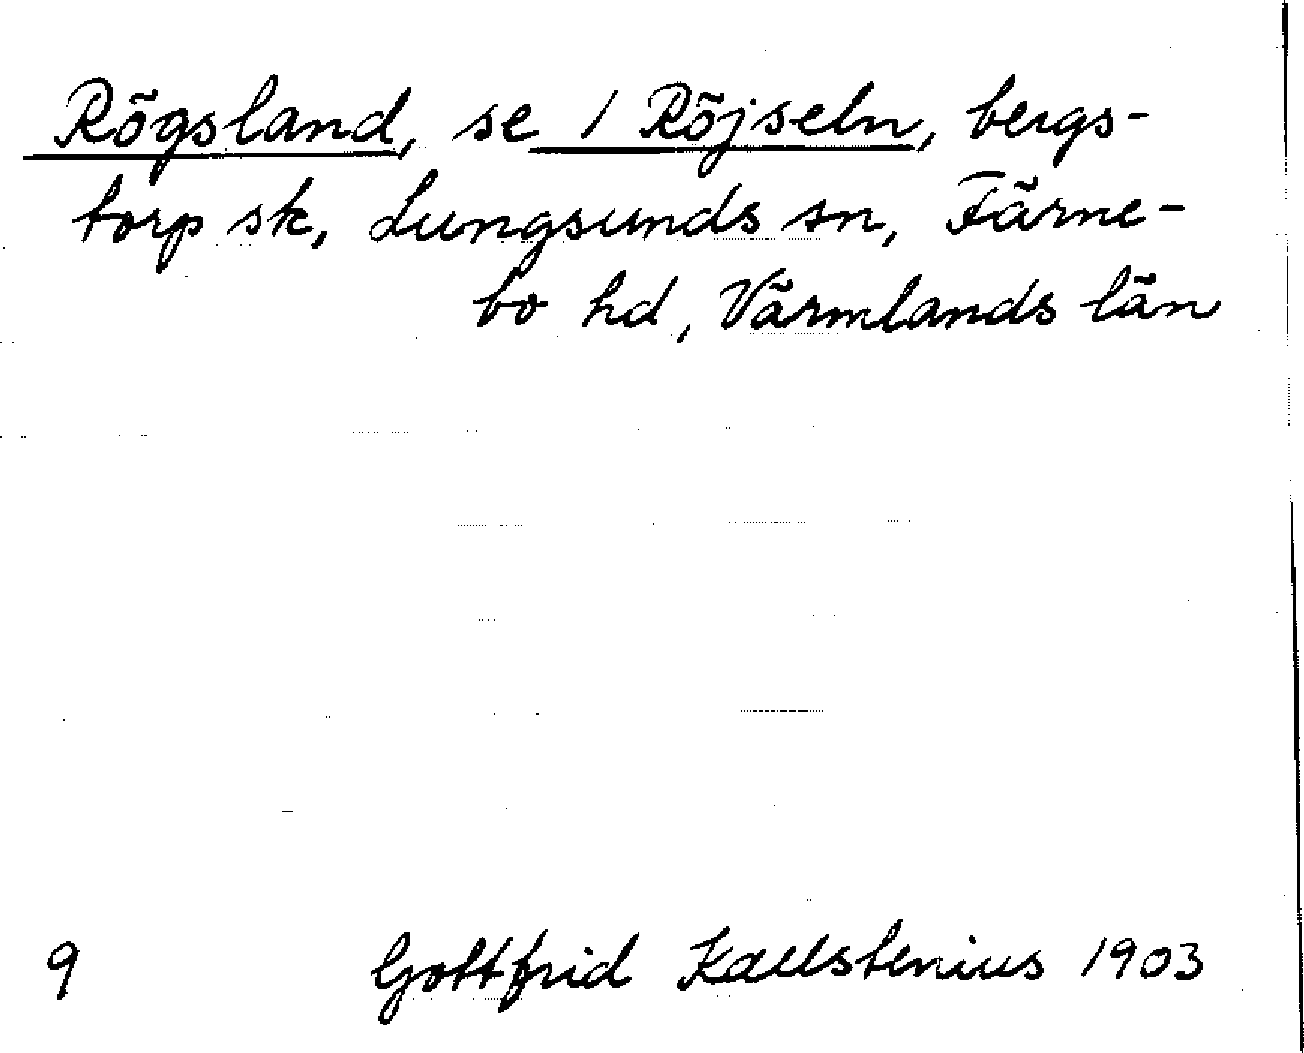 Rögsland, se 1 Röjseln, bergs-
torp sk, Lungsunds sn, Färne-
bo hd, Värmlands län
9 Gottfrid Kallstenius 1903